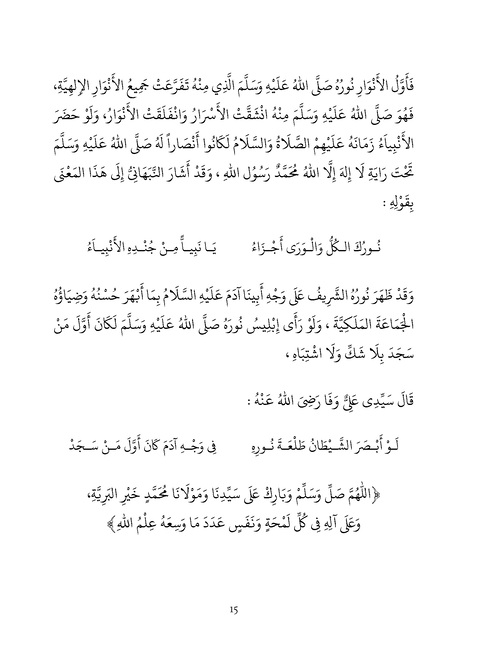 فَأَوَّلُ الأَنْوَارِ نُورُهُ صَلَّى اللهُ عَلَيْهِ وَسَلَّمَ الَّذِي مِنْهُ تَفَرَّعَتْ جَمِيعُ الأَنْوَارِ الإِلهِيَّةِ،
فَهُوَ صَلَّى اللهُ عَلَيْهِ وَسَلَّمَ مِنْهُ انْشَقَّتْ الأَسْرَارُ وَانْفَلَقَتْ الأَنْوَارُ، وَلَوْ حَضَرَ
الأَنْبِيَاءُ زَمَانَهُ عَلَيْهِمْ الصَّلَاةُ وَالسَّلَامُ لَكَانُوا أَنْصَاراً لَهُ صَلَّى اللهُ عَلَيْهِ وَسَلَّمَ
تَحْتَ رَايَةِ لَا إِلهَ إِلَّا اللهُ مُحَمَّدٌ رَسُولُ اللهِ ، وَقَدْ أَشَارَ النَّبْهَانِيُّ إِلَى هَذَا المَعْنَى
بِقَوْلِهِ :
نُـورُكَ الـكُلُّ وَالْـوَرَى أَجْـزَاءُ يَـا نَبِيـاً مِـنْ جُنْـدِهِ الأَنْبِيَـاءُ
وَقَدْ ظَهَرَ نُورُهُ الشَّرِيفُ عَلَى وَجْهِ أَبِينَا آدَمَ عَلَيْهِ السَّلَامُ بِمَا أَبْهَرَ حُسْنُهُ وَضِيَاؤُهُ
الجَمَاعَةَ المَلَكِيَّةَ ، وَلَوْ رَأَى إِبْلِيسُ نُورَهُ صَلَّى اللهُ عَلَيْهِ وَسَلَّمَ لَكَانَ أَوَّلَ مَنْ
سَجَدَ بِلَا شَكٍّ وَلَا اشْتِبَاهِ ،
قَالَ سَيِّدِى عَلِيُّ وَفَا رَضِىَ اللهُ عَنْهُ :
لَـوْ أَبْـصَرَ الشَّـيْطَانُ طَلْعَـةَ نُـورِهِ فِى وَجْـهِ آدَمَ كَانَ أَوَّلَ مَـنْ سَـجَدْ
﴿اللَّهُمَّ صَلِّ وَسَلِّمْ وَبَارِكْ عَلَى سَيِّدِنَا وَمَوْلَانَا مُحَمَّدٍ خَيْرِ البَرِيَّةِ،
وَعَلَى آلِهِ فِى كُلِّ لَمْحَةٍ وَنَفَسٍ عَدَدَ مَا وَسِعَهُ عِلْمُ اللهِ﴾
15